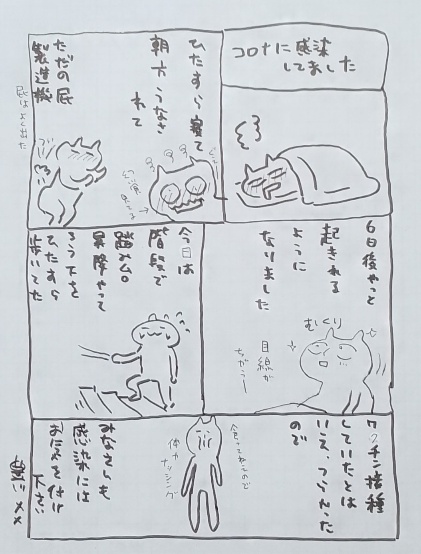 コロナに感染
してました
ひたすら寝て
朝方うなさ
れて
幻演
ただの屁
製造機
屁はよく出た
6日後やっと
起きれる
ように
なりました
むくり
目線が
ちがう…
今日は
階段で
踏み台
昇降やって
ろう下を
ひたすら
歩いてた
ワクチン接種
していたとは
いえ、つらかった
ので
体力
ナッシング
みなさんも
感染には
お気を付け
下さい